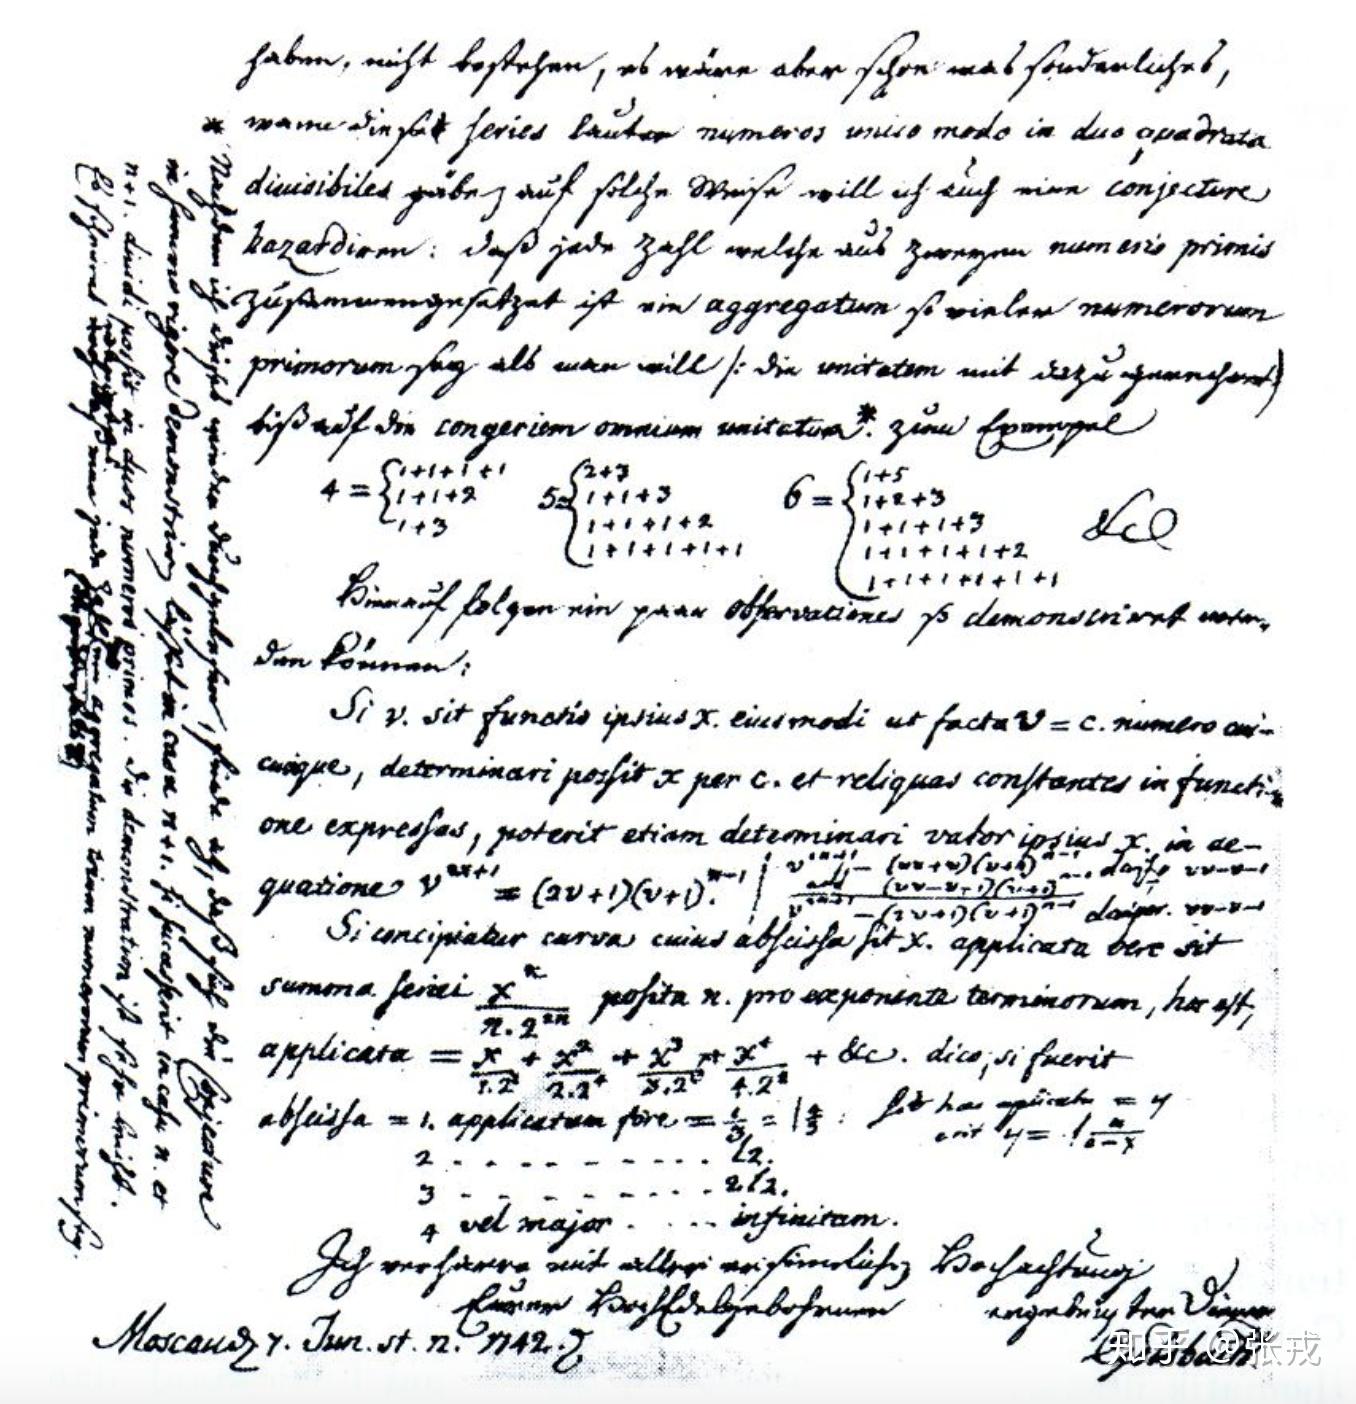 haben, nicht bestehen, es wäre aber schon was sonderliches,
wenn dieselbe series lauter numeros unico modo in duo quadrata
divisibiles gäbe, auf solche Weise will ich auch eine conjecture
hazardiren: daß jede Zahl welche aus zweyen numeris primis
zusammengesetzet ist ein aggregatum so vieler numerorum
primorum sey als man will /: die unitatem mit dazu gerechnet)
biß auf die congeriem omnium unitatum*. zum Exempel
4 = {1+1+1+1
1+1+2
1+3
5 = {2+3
1+1+3
1+1+1+2
1+1+1+1+1
6 = {1+5
1+2+3
1+1+1+3
1+1+1+1+2
1+1+1+1+1+1
&c
Hierauf folgen ein paar observationes so demonstriret wer-
den können:
Si v. sit functio ipsius x. eiusmodi ut facta v = c. numero cui-
cunque, determinari possit x per c. et reliquas constantes in functi-
one expressas, poterit etiam determinari valor ipsius x. in ae-
quatione v^{2x+1} = (2v+1)(v+1)^{n-1}
Si concipiatur curva cuius abscissa sit x. applicata vero sit
summa seriei x^n / n.2^{2n} posita n. pro exponente terminorum, hoc est,
applicata = x/1.2² + x²/2.2⁴ + x³/3.2⁶ + x⁴/4.2⁸ + &c. dico, si fuerit
abscissa = 1. applicatam fore = l 4/3
2 . . . . . . . . . . l2.
3 . . . . . . . . . . 2l2.
4 vel major . . . . infinitam.
Ich verharre mit aller ersinnlichen Hochachtung
Eurer HochEdelgebohrnen ergebenster Diener
Moscau 7. Jun. st. n. 1742. Goldbach.
* Nachdem ich dieses wieder durchgelesen, finde ich, daß sich die conjecture
in summo rigore demonstriren lässet in casu n+1. si successerit in casu n. et
n+1. dividi possit in duos numeros primos. Die demonstration ist sehr leicht.
Es scheinet wenigstens, daß eine jede Zahl, die größer ist als 2, ein aggregatum trium numerorum primorum sey.
知乎 @张戎